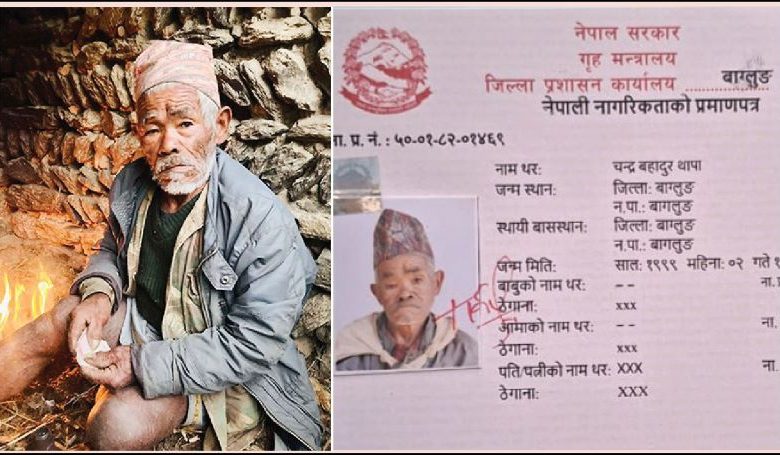 नेपाल सरकार
गृह मन्त्रालय
जिल्ला प्रशासन कार्यालय बाग्लुङ
नेपाली नागरिकताको प्रमाणपत्र
ना. प्र. नं. : ५०-०१-८२-०१४६९
नाम थर: चन्द्र बहादुर थापा
जन्म स्थान: जिल्ला: बाग्लुङ
न.पा.: बागलुङ
स्थायी बासस्थान: जिल्ला: बाग्लुङ
न.पा.: बागलुङ
जन्म मिति: साल: १९९९ महिना: ०२ गते १
बाबुको नाम थर: -- ना.
ठेगाना: xxx
आमाको नाम थर: -- ना.
ठेगाना: xxx
पति/पत्नीको नाम थर: XXX ना.
ठेगाना: XXX